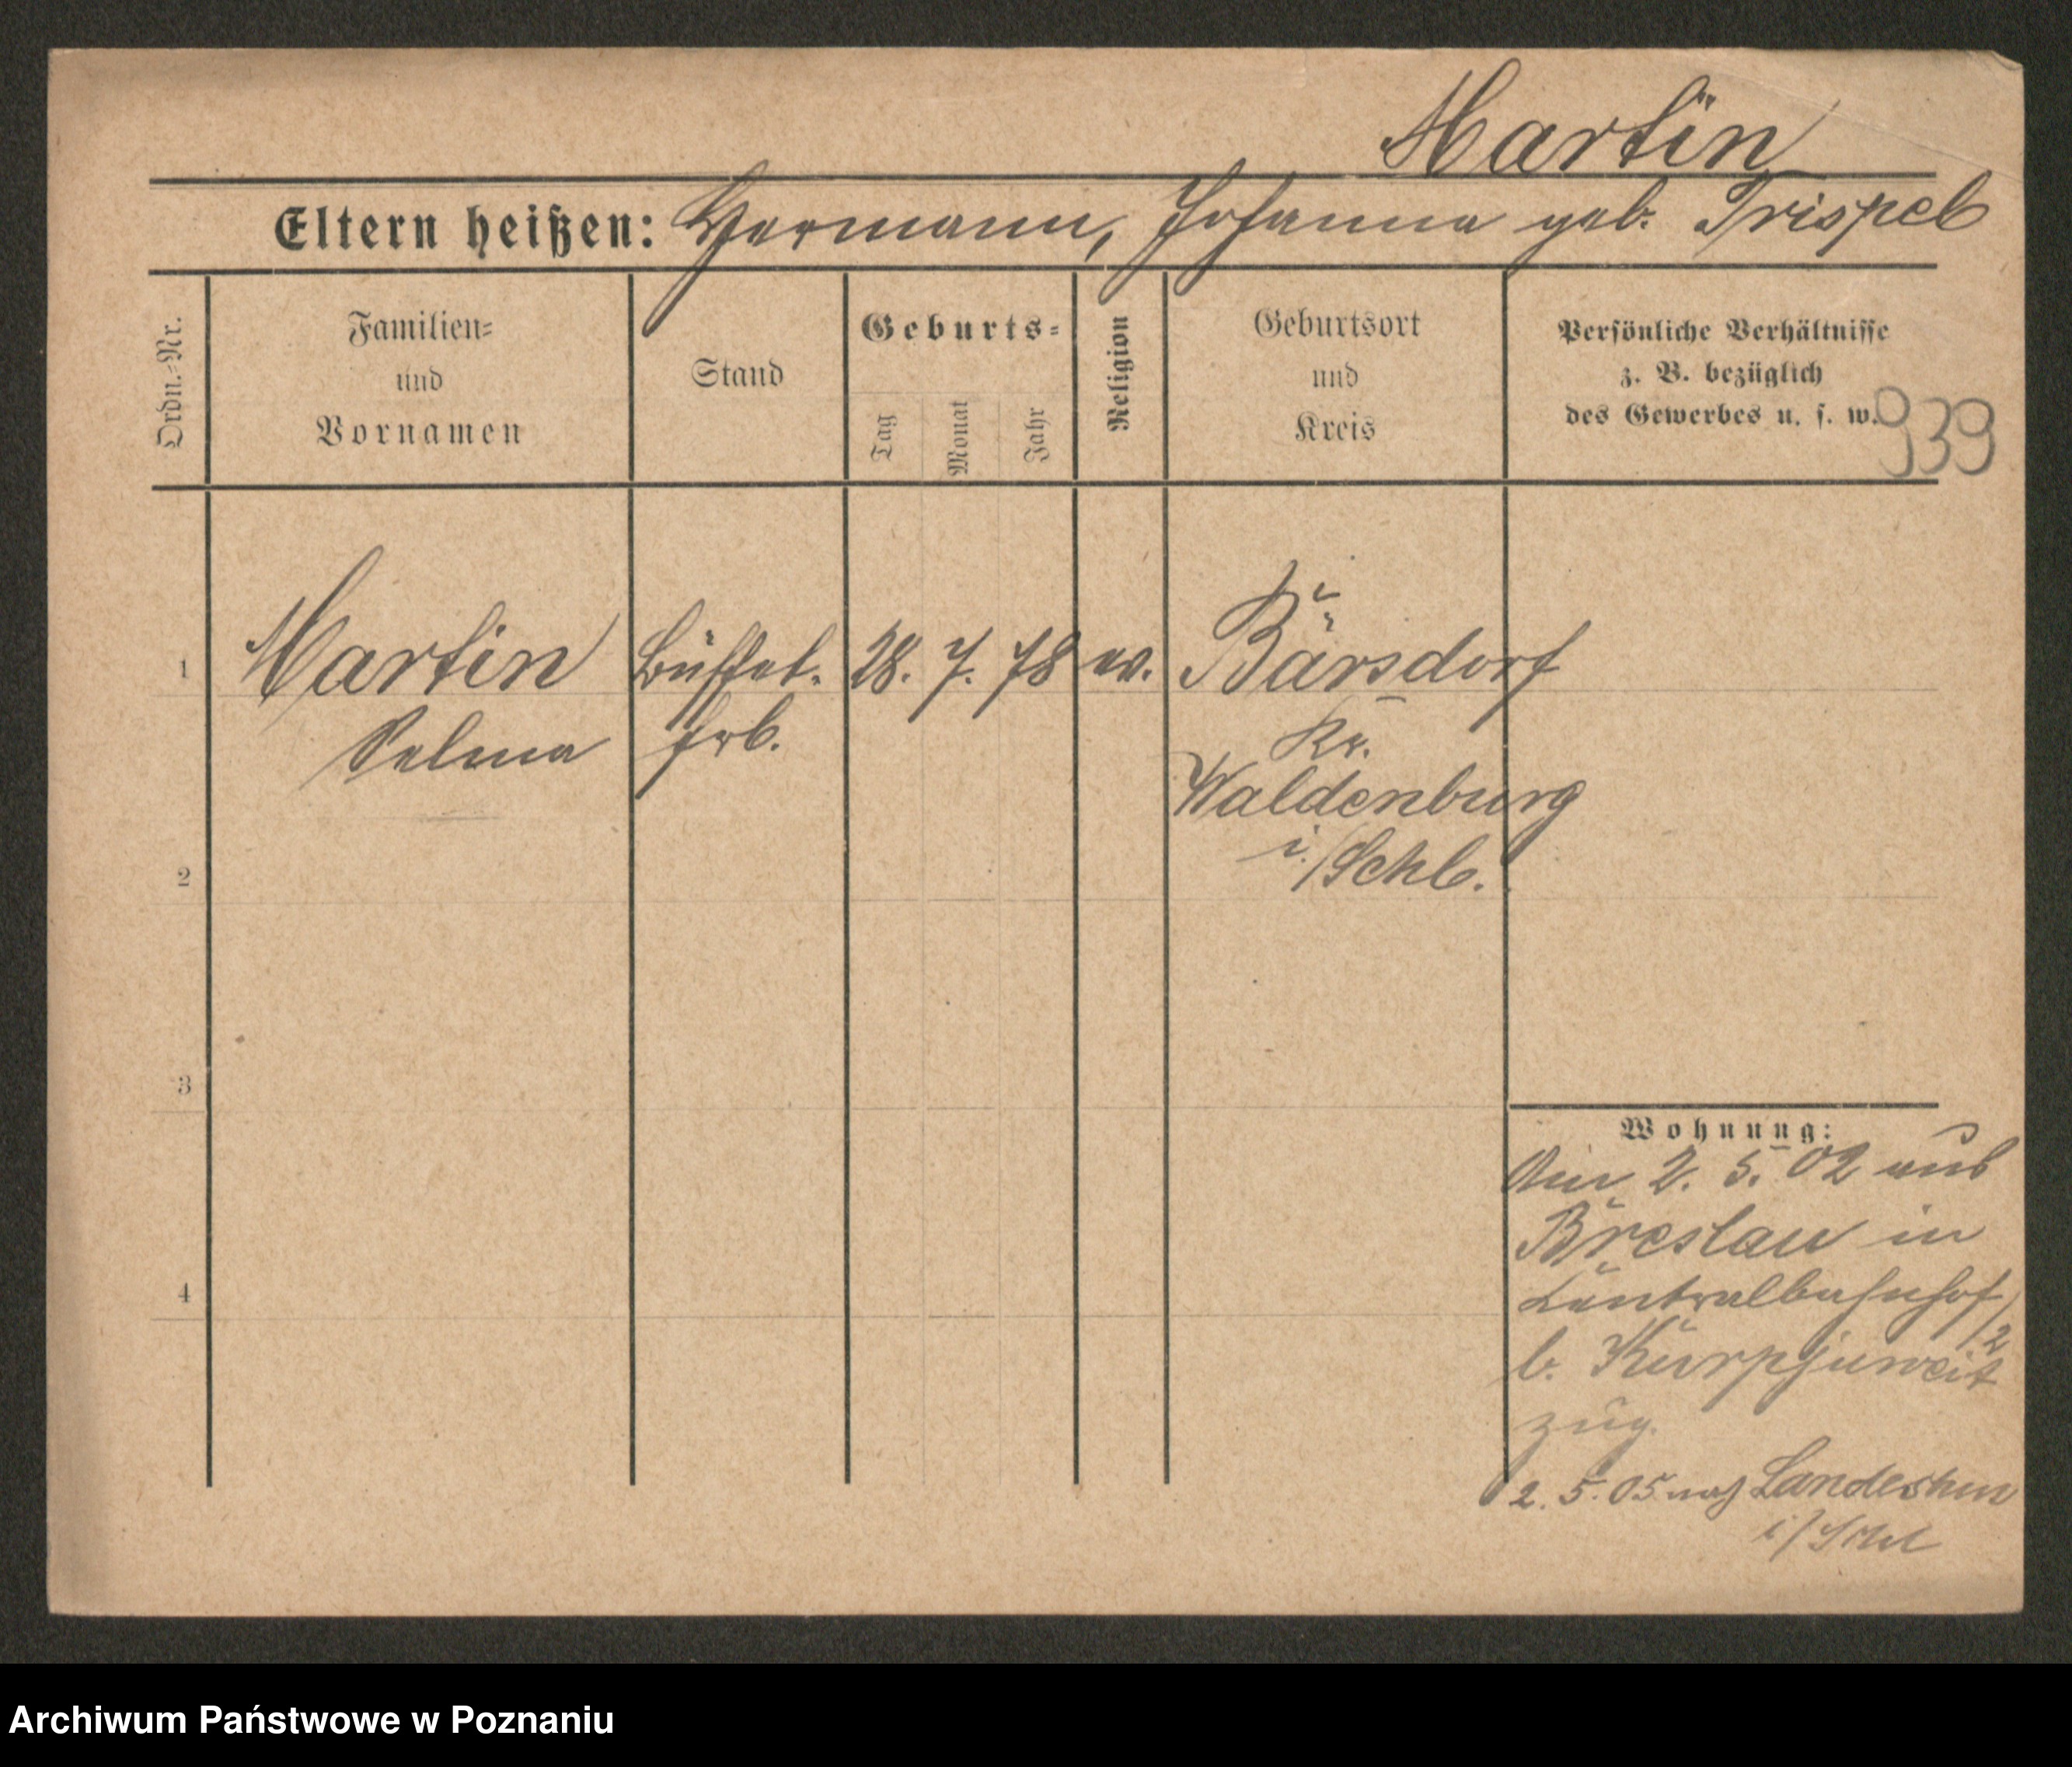 Martin
Eltern heißen: Hermann, Johanna geb. Trispel
Ordn.-Nr.
Familien-
und
Vornamen
Stand
Geburts-
Tag
Monat
Jahr
Religion
Geburtsort
und
Kreis
Persönliche Verhältnisse
z. B. bezüglich
des Gewerbes u. s. w.
939
1
Martin
Selma
Büffet.
frl.
28. 7. 78
ev.
Bärsdorf
Kr.
Waldenburg
i./Schl.
2
3
4
Wohnung:
Am 2. 5. 02 aus
Breslau in
Centralbahnhof
2
b. Kurpjuweit
zug.
2. 5. 05 nach
i/Schl
Archiwum Państwowe w Poznaniu